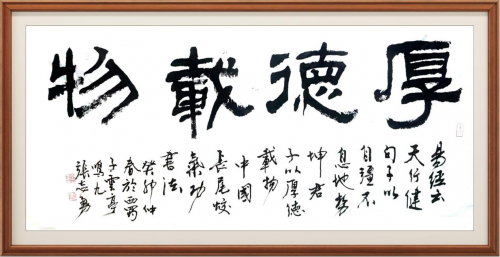 厚德載物
易經云
天行健
君子以
自彊不
息地势
坤君
子以厚德
載物
中國
長尾蛟
氣功
書法
癸卯仲
春於西蜀
子雲亭
張志勇